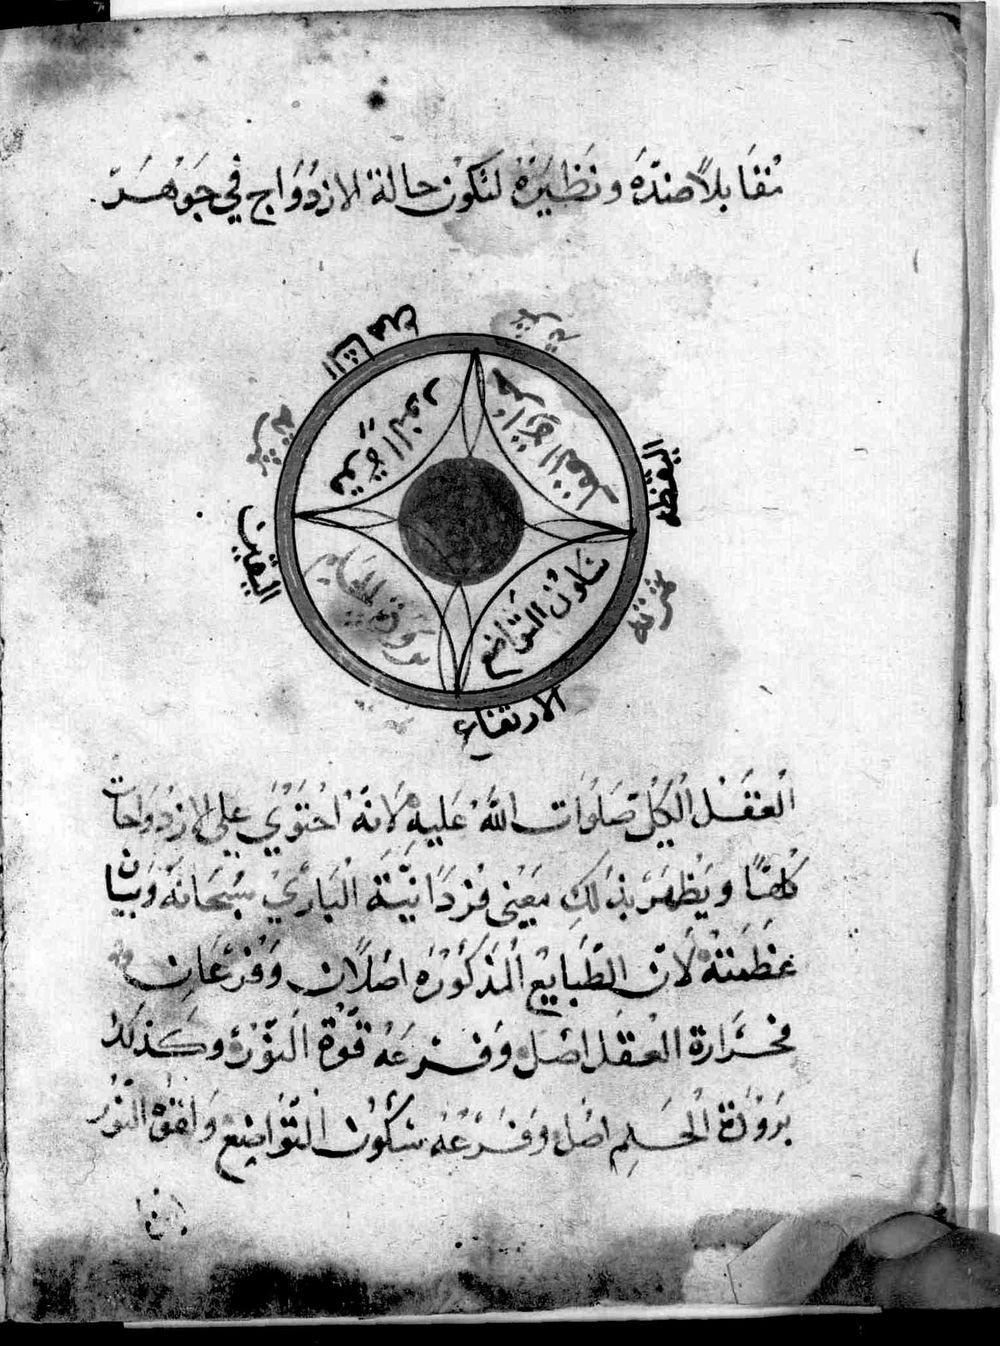 مُتقَابلاً ضدّهَ ونَظيرَهُ لتَكوُن حالة الازدوَاج في جَوْهَرَ
حرارة العقل
قوّة النور
سكون التواضع
برودة الحلم
اليقين
الارتقاء
العَقَل الكلي صَلوَات اللّه عَليهِ لاَنهَ احْتوَي علي الازدوَاجات
كلهَا ويَظهَر بذلكِ مَعنَي فرْدَانيَّة البَاريْ سبُحَانهَ وَبيَان
عَظمَتهْ لاَن الطّبَايع المْذكوُرَه اصْلان وَفرْعَان
فحَرَارة العقل اصْل وَفرعَهُ قوَّة النوُّر وكَذلك
برَوُدَة الحَلمِ اصْل وَفَرعْهُ سكوُن التوَّاضعْ وَلقوة النوُّر